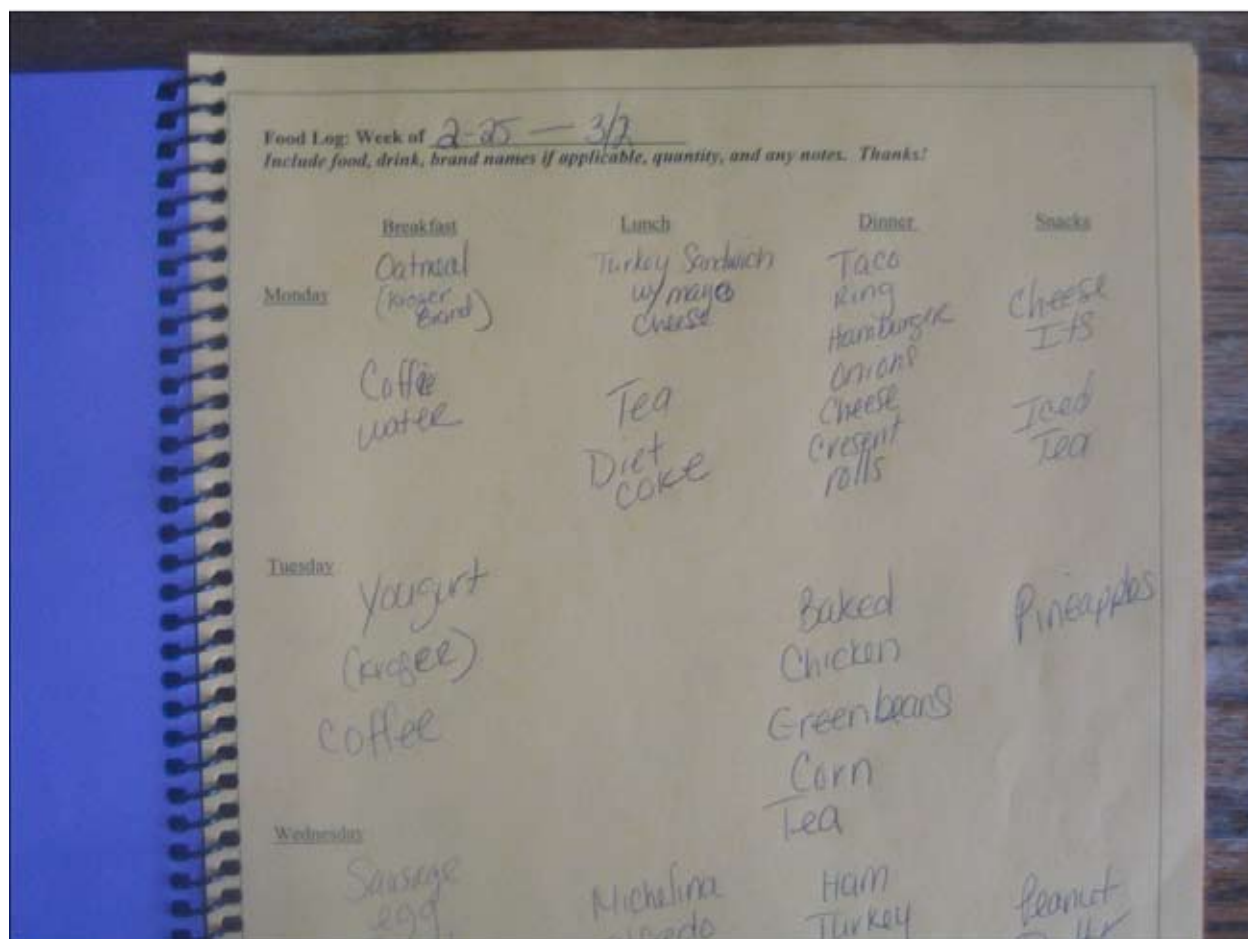 Food Log: Week of 2-25 — 3/2
Include food, drink, brand names if applicable, quantity, and any notes. Thanks!
Breakfast Lunch Dinner Snacks
Monday
Oatmeal
(Kroger
Brand)
Coffee
water
Turkey Sandwich
w/ mayo
Cheese
Tea
Diet
coke
Taco
Ring
Hamburger
onions
Cheese
Cresent
rolls
Cheese
Its
Iced
Tea
Tuesday
Yougurt
(Kroger)
Coffee
Baked
Chicken
Greenbeans
Corn
Tea
Pineapples
Wednesday
Sausage
egg
Michelina
Ham
Turkey
Peanut